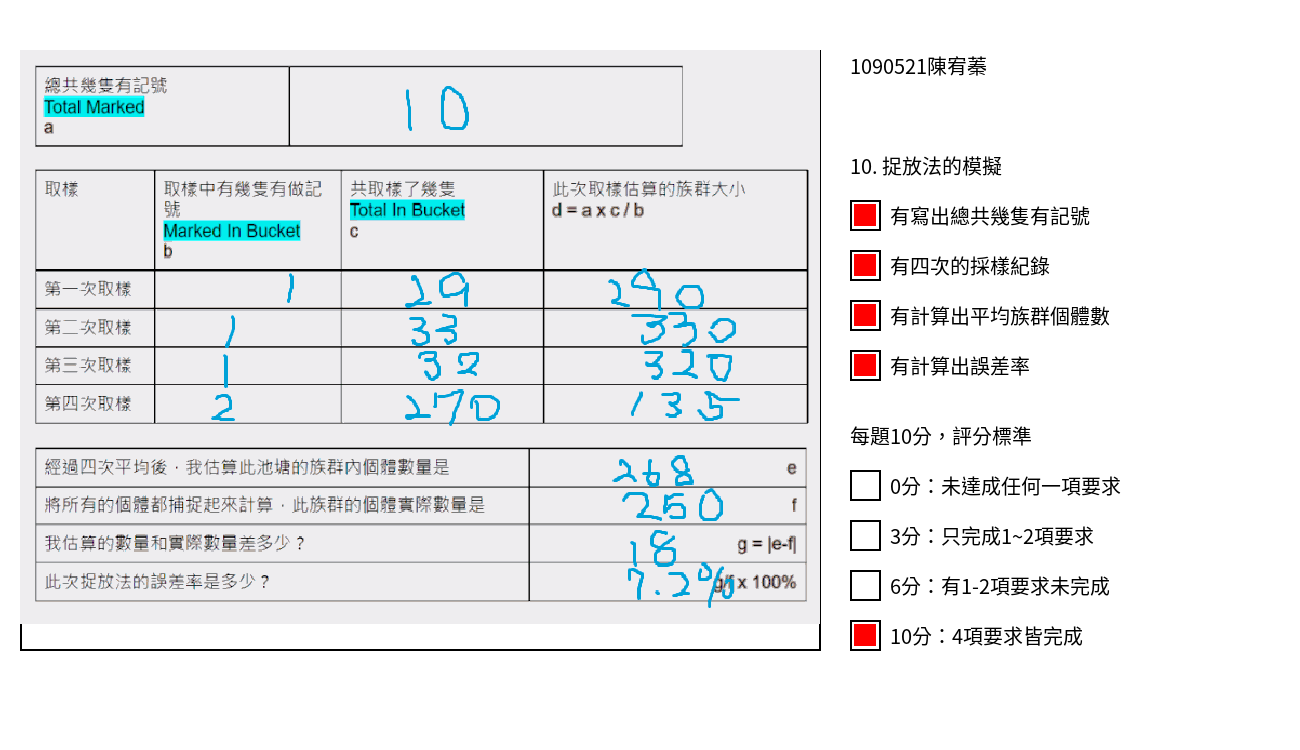 總共幾隻有記號
Total Marked
a
10
取樣
取樣中有幾隻有做記號
Marked In Bucket
b
共取樣了幾隻
Total In Bucket
c
此次取樣估算的族群大小
d = a x c / b
第一次取樣 1 29 290
第二次取樣 1 33 330
第三次取樣 1 32 320
第四次取樣 2 270 135
經過四次平均後，我估算此池塘的族群內個體數量是 268 e
將所有的個體都捕捉起來計算，此族群的個體實際數量是 250 f
我估算的數量和實際數量差多少？ 18 g = |e-f|
此次捉放法的誤差率是多少？ 7.2% g/f x 100%
1090521陳宥蓁
10. 捉放法的模擬
有寫出總共幾隻有記號
有四次的採樣紀錄
有計算出平均族群個體數
有計算出誤差率
每題10分，評分標準
0分：未達成任何一項要求
3分：只完成1~2項要求
6分：有1-2項要求未完成
10分：4項要求皆完成